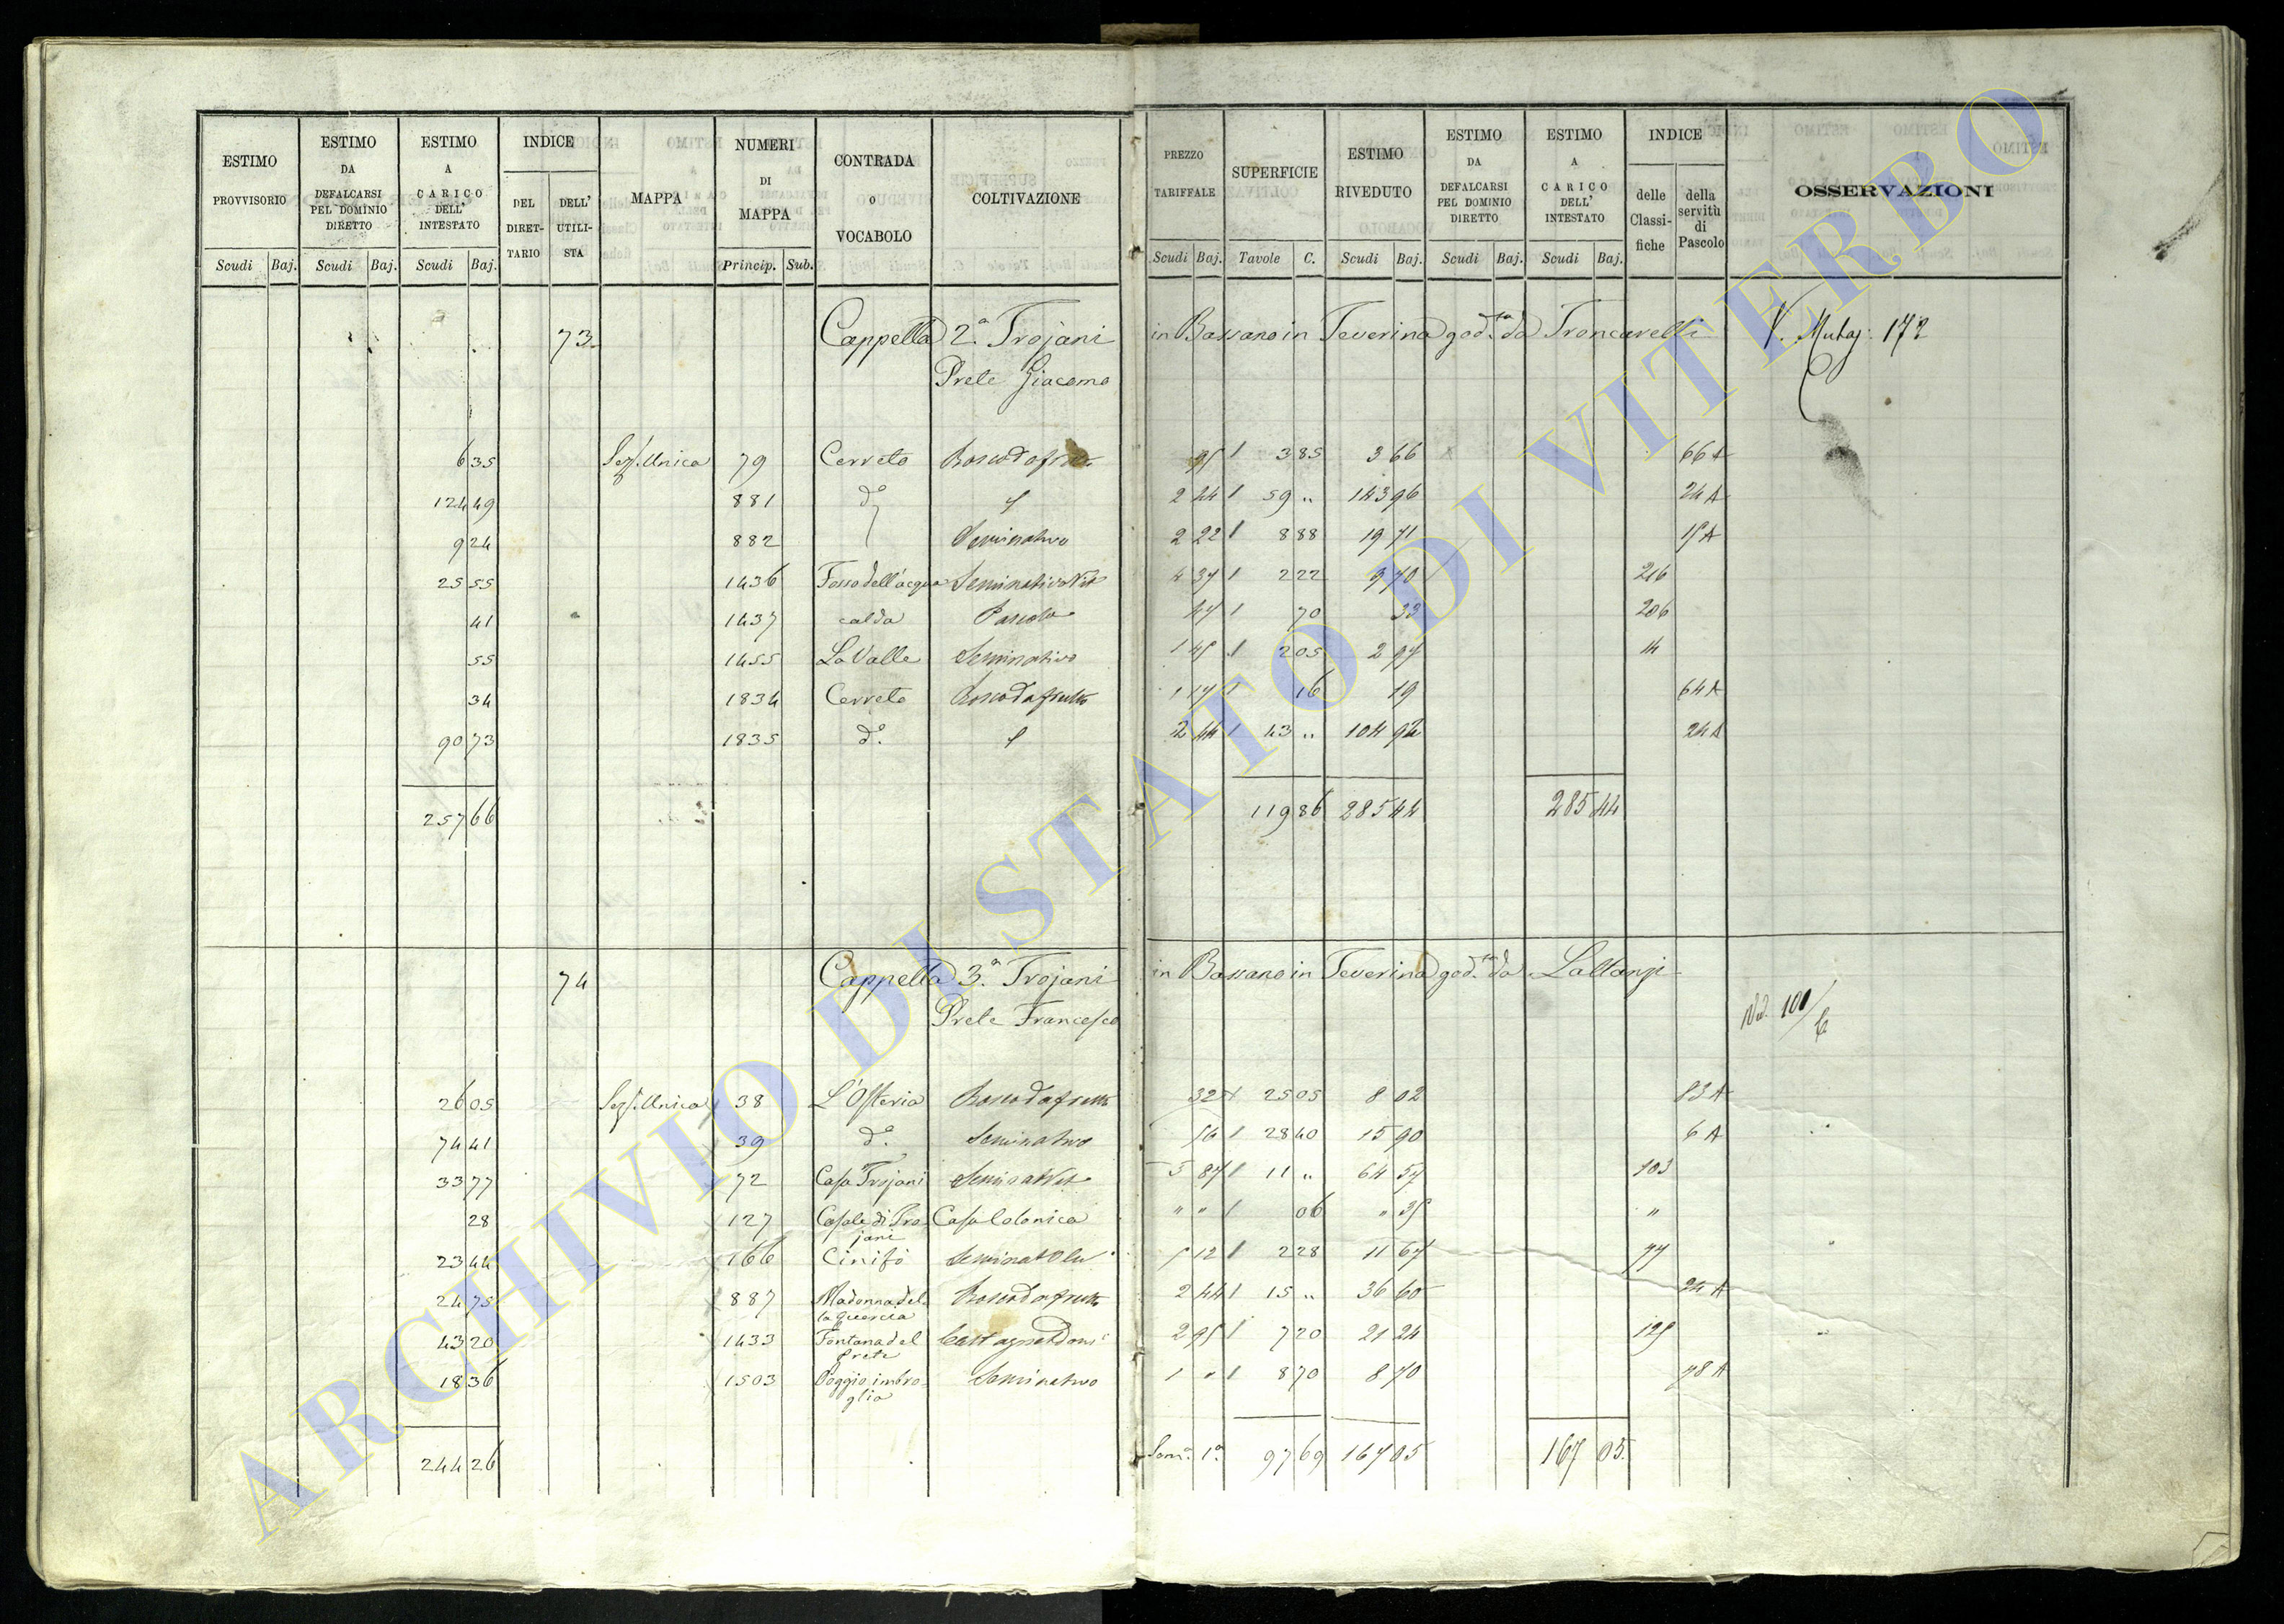 ESTIMO PROVVISORIO | ESTIMO DA DEFALCARSI PEL DOMINIO DIRETTO | ESTIMO A CARICO DELL' INTESTATO | INDICE | MAPPA | NUMERI DI MAPPA | CONTRADA O VOCABOLO | COLTIVAZIONE | PREZZO TARIFFALE | SUPERFICIE | ESTIMO RIVEDUTO | ESTIMO DA DEFALCARSI PEL DOMINIO DIRETTO | ESTIMO A CARICO DELL' INTESTATO | INDICE | OSSERVAZIONI
DEL DIRETTARIO | DELL' UTILISTA | delle Classifiche | della servitù di Pascolo
Scudi | Baj. | Scudi | Baj. | Scudi | Baj. | Princip. | Sub. | Scudi | Baj. | Tavole | C. | Scudi | Baj. | Scudi | Baj. | Scudi | Baj.
73. Cappella 2.a Trojani in Bassano in Teverina god.ta da Troncarelli
Prete Giacomo
172
6 35 Sez. Unica 79 Cerreto 3 85 3 66 66 A
124 49 881 d.o 2 44 59 " 143 96 24 A
9 24 882 Seminativo 2 22 8 88 19 71
25 55 1436 Fosso dell'acqua Seminativo Vit 4 37 2 22 9 70 216
41 1437 calda Pascolo 47 70 33 206
55 1455 La Valle Seminativo 1 45 2 05 2 97 14
34 1834 Cerreto Bosco da frutto 1 17 16 19 64 A
90 73 1835 d.o 2 44 43 " 104 92 24 A
257 66 119 86 285 44 285 44
74 Cappella 3.a Trojani in Bassano in Teverina god.ta da Lattanzi
Prete Francesco
100
26 05 Sez. Unica 38 L'Osteria Bosco da frutto 32 25 05 8 02 83 A
74 41 39 d.o Seminativo 56 28 40 15 90 6 A
33 77 72 Casa Trojani Seminat Vit 5 87 11 " 64 57 103
28 127 Casale di Tro- Casa Colonica " " 06 " 35 "
jani
23 44 166 Cinifò Seminat Oliv 5 12 2 28 11 67 77
24 75 887 Madonna del- Bosco da frutto 2 44 15 " 36 60 24 A
la Quercia
43 20 1433 Fontana del 2 95 7 20 21 24 125
Prete
18 36 1503 Poggio imbro- Seminativo 1 " 8 70 8 70 78 A
glia
244 26 Som.a 1.a 97 69 167 05 167 05
ARCHIVIO DI STATO DI VITERBO